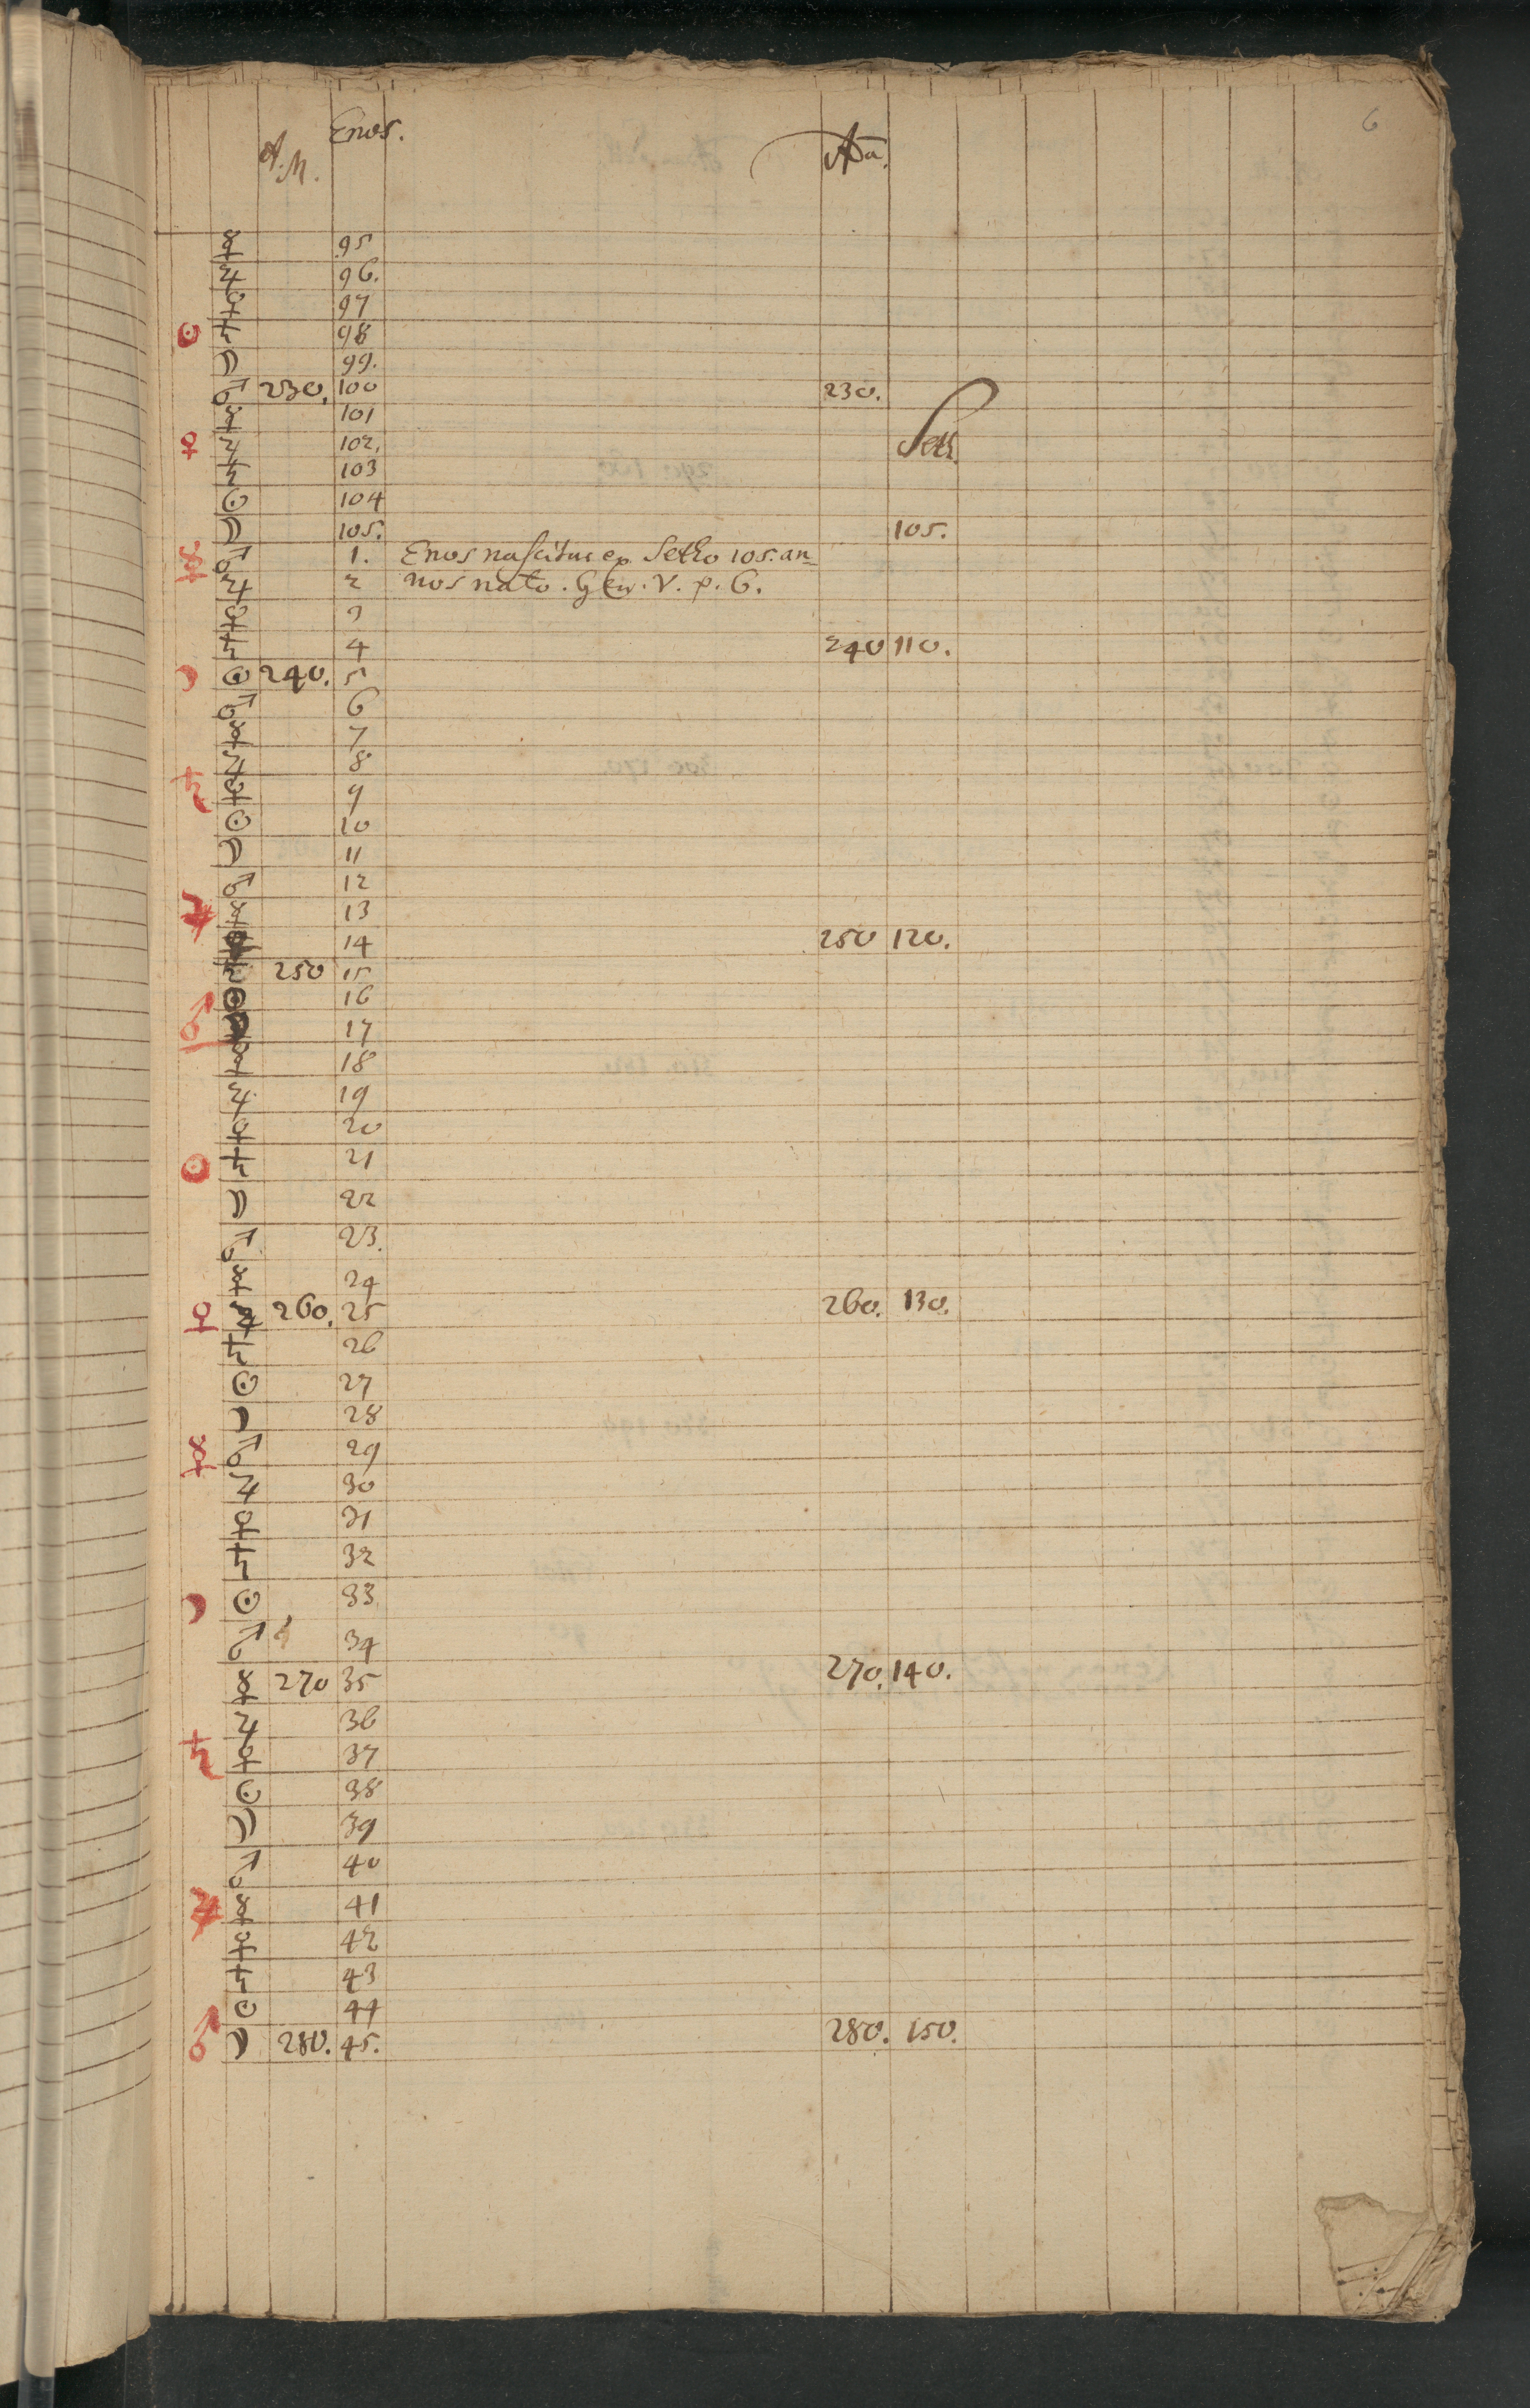 6
Enos.
A. M.
Ada.
☿ 95
♃ 96.
♀ 97
☉ ♄ 98
☽ 99.
♂ 230. 100 230.
☿ 101
♀ ♃ 102. Seth.
♄ 103
☉ 104
☽ 105. 105.
☿ ♂ 1. Enos nascitur ex Setho 105. an=
♃ 2 nos nato. Gen. V. v. 6.
♀ 3
♄ 4 240 110.
☽ ☉ 240. 5
♂ 6
☿ 7
♃ 8
♄ ♀ 9
☉ 10
☽ 11
♂ 12
♃ ☿ 13
♀ 14 250 120.
♄ 250 15
♂ ☉ 16
17
☿ 18
♃ 19
♀ 20
☉ ♄ 21
☽ 22
♂ 23.
☿ 24
♀ ♃ 260. 25 260. 130.
♄ 26
☉ 27
☽ 28
☿ ♂ 29
♃ 30
♀ 31
♄ 32
☽ ☉ 33
♂ 34
☿ 270 35 270. 140.
♃ 36
♄ ♀ 37
☉ 38
☽ 39
♂ 40
♃ ☿ 41
♀ 42
♄ 43
☉ 44
♂ ☽ 280. 45. 280. 150.